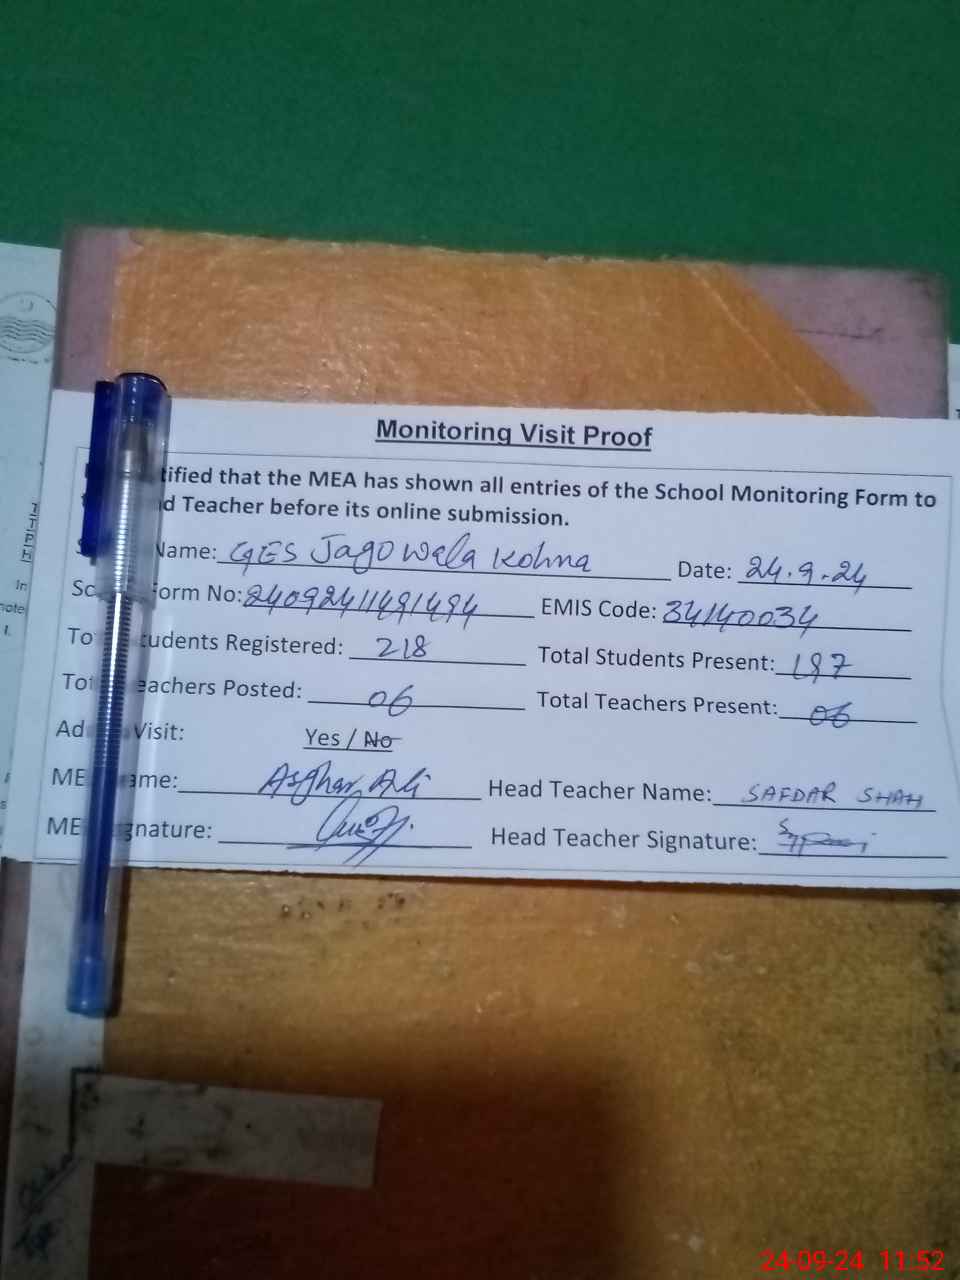 Monitoring Visit Proof
tified that the MEA has shown all entries of the School Monitoring Form to
d Teacher before its online submission.
Name: GES Jagowala Kohna Date: 24.9.24
Sc orm No: 24092411491494 EMIS Code: 34140034
To tudents Registered: 218 Total Students Present: 197
Tot eachers Posted: 06 Total Teachers Present: 06
Ad Visit: Yes / No
ME ame: Asghar Ali Head Teacher Name: SAFDAR SHAH
ME gnature: Head Teacher Signature:
24-09-24 11:52